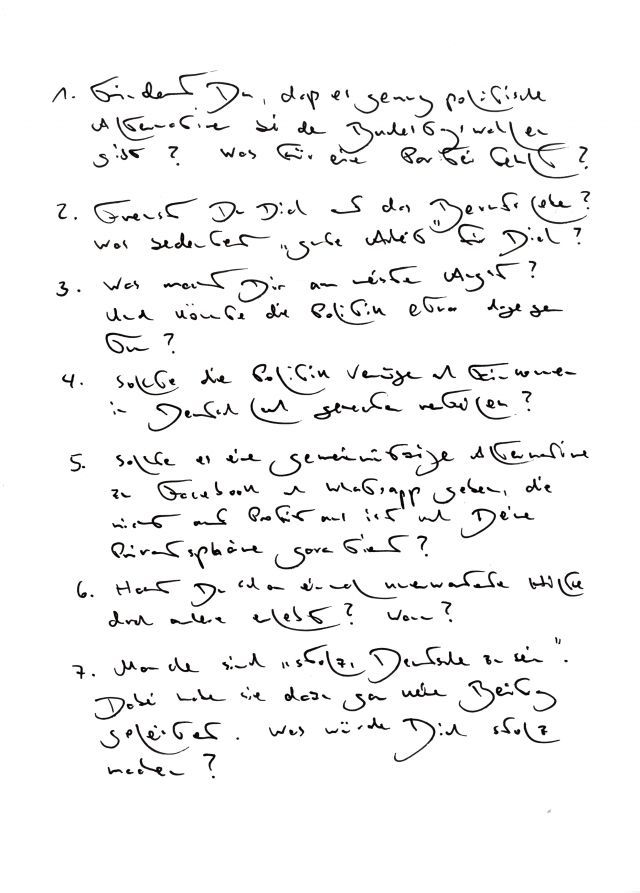 1. Findest Du, daß es genug politische
Alternative bei den Bundestagswahlen
gibt? Was für eine Partei fehlt?
2. Freust Du Dich auf das Berufsleben?
Was bedeutet „gute Arbeit" für Dich?
3. Was macht Dir am meisten Angst?
Und könnte die Politik etwas dagegen
tun?
4. Sollte die Politik Vermögen und Einkommen
in Deutschland gerechter verteilen?
5. Sollte es eine gemeinnützige Alternative
zu Facebook und Whatsapp geben, die
nicht auf Profit aus ist und Deine
Privatsphäre garantiert?
6. Hast Du schon einmal unerwartete Hilfe
durch andere erlebt? Wann?
7. Manche sind „stolz, Deutsche zu sein".
Dabei haben sie dazu gar keinen Beitrag
geleistet. Was würde Dich stolz
machen?